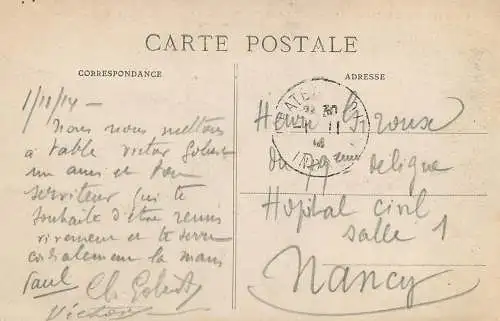 CARTE POSTALE
CORRESPONDANCE
ADRESSE
1/11/14 -
Nous nous mettons
à table victor Gobert
un ami et ton
serviteur qui te
souhaite d'être remis
vivement et te serre
cordialement la main
Paul Ch Gobert
Victor
Henri Giroux
du 79eme de ligne
Hopital civil
salle 1
Nancy